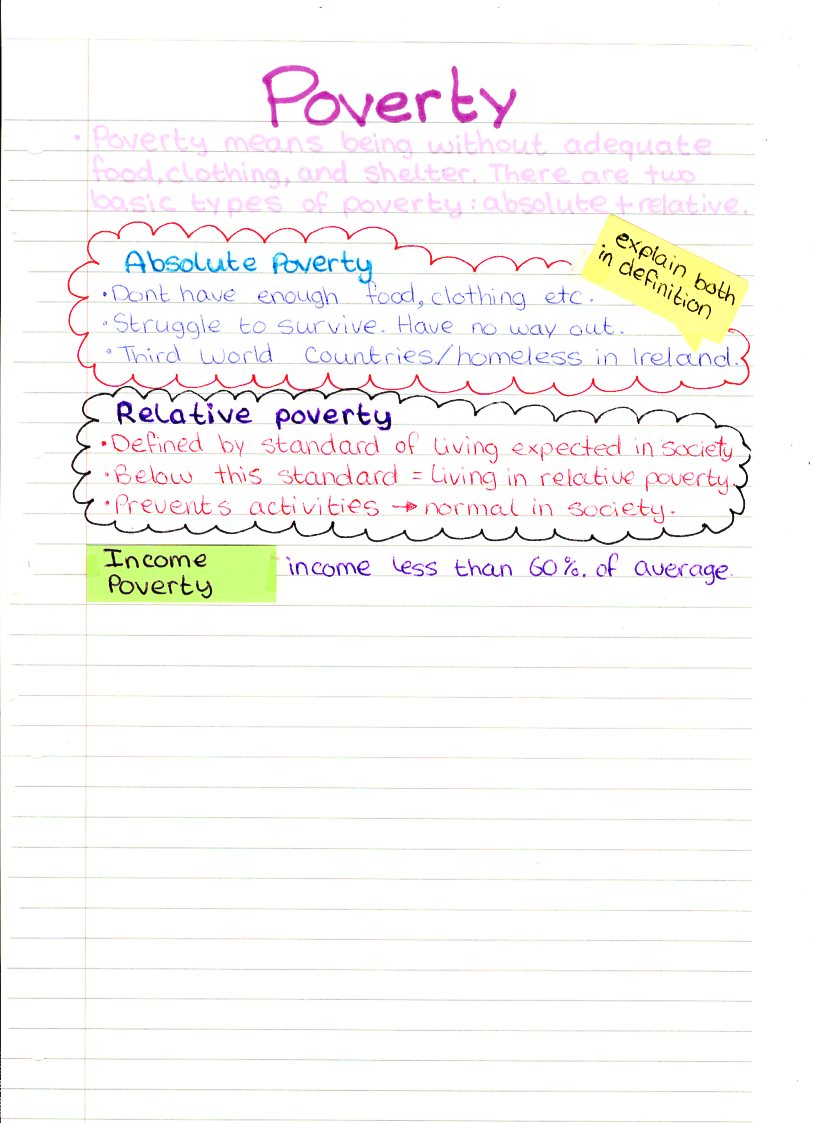 Poverty
• Poverty means being without adequate
food, clothing, and shelter. There are two
basic types of poverty: absolute + relative.
explain both
in definition
Absolute Poverty
• Dont have enough food, clothing etc.
• Struggle to survive. Have no way out.
• Third World Countries/homeless in Ireland.
Relative poverty
• Defined by standard of living expected in society
• Below this standard = living in relative poverty.
• Prevents activities → normal in society.
Income
Poverty
income less than 60%. of average.